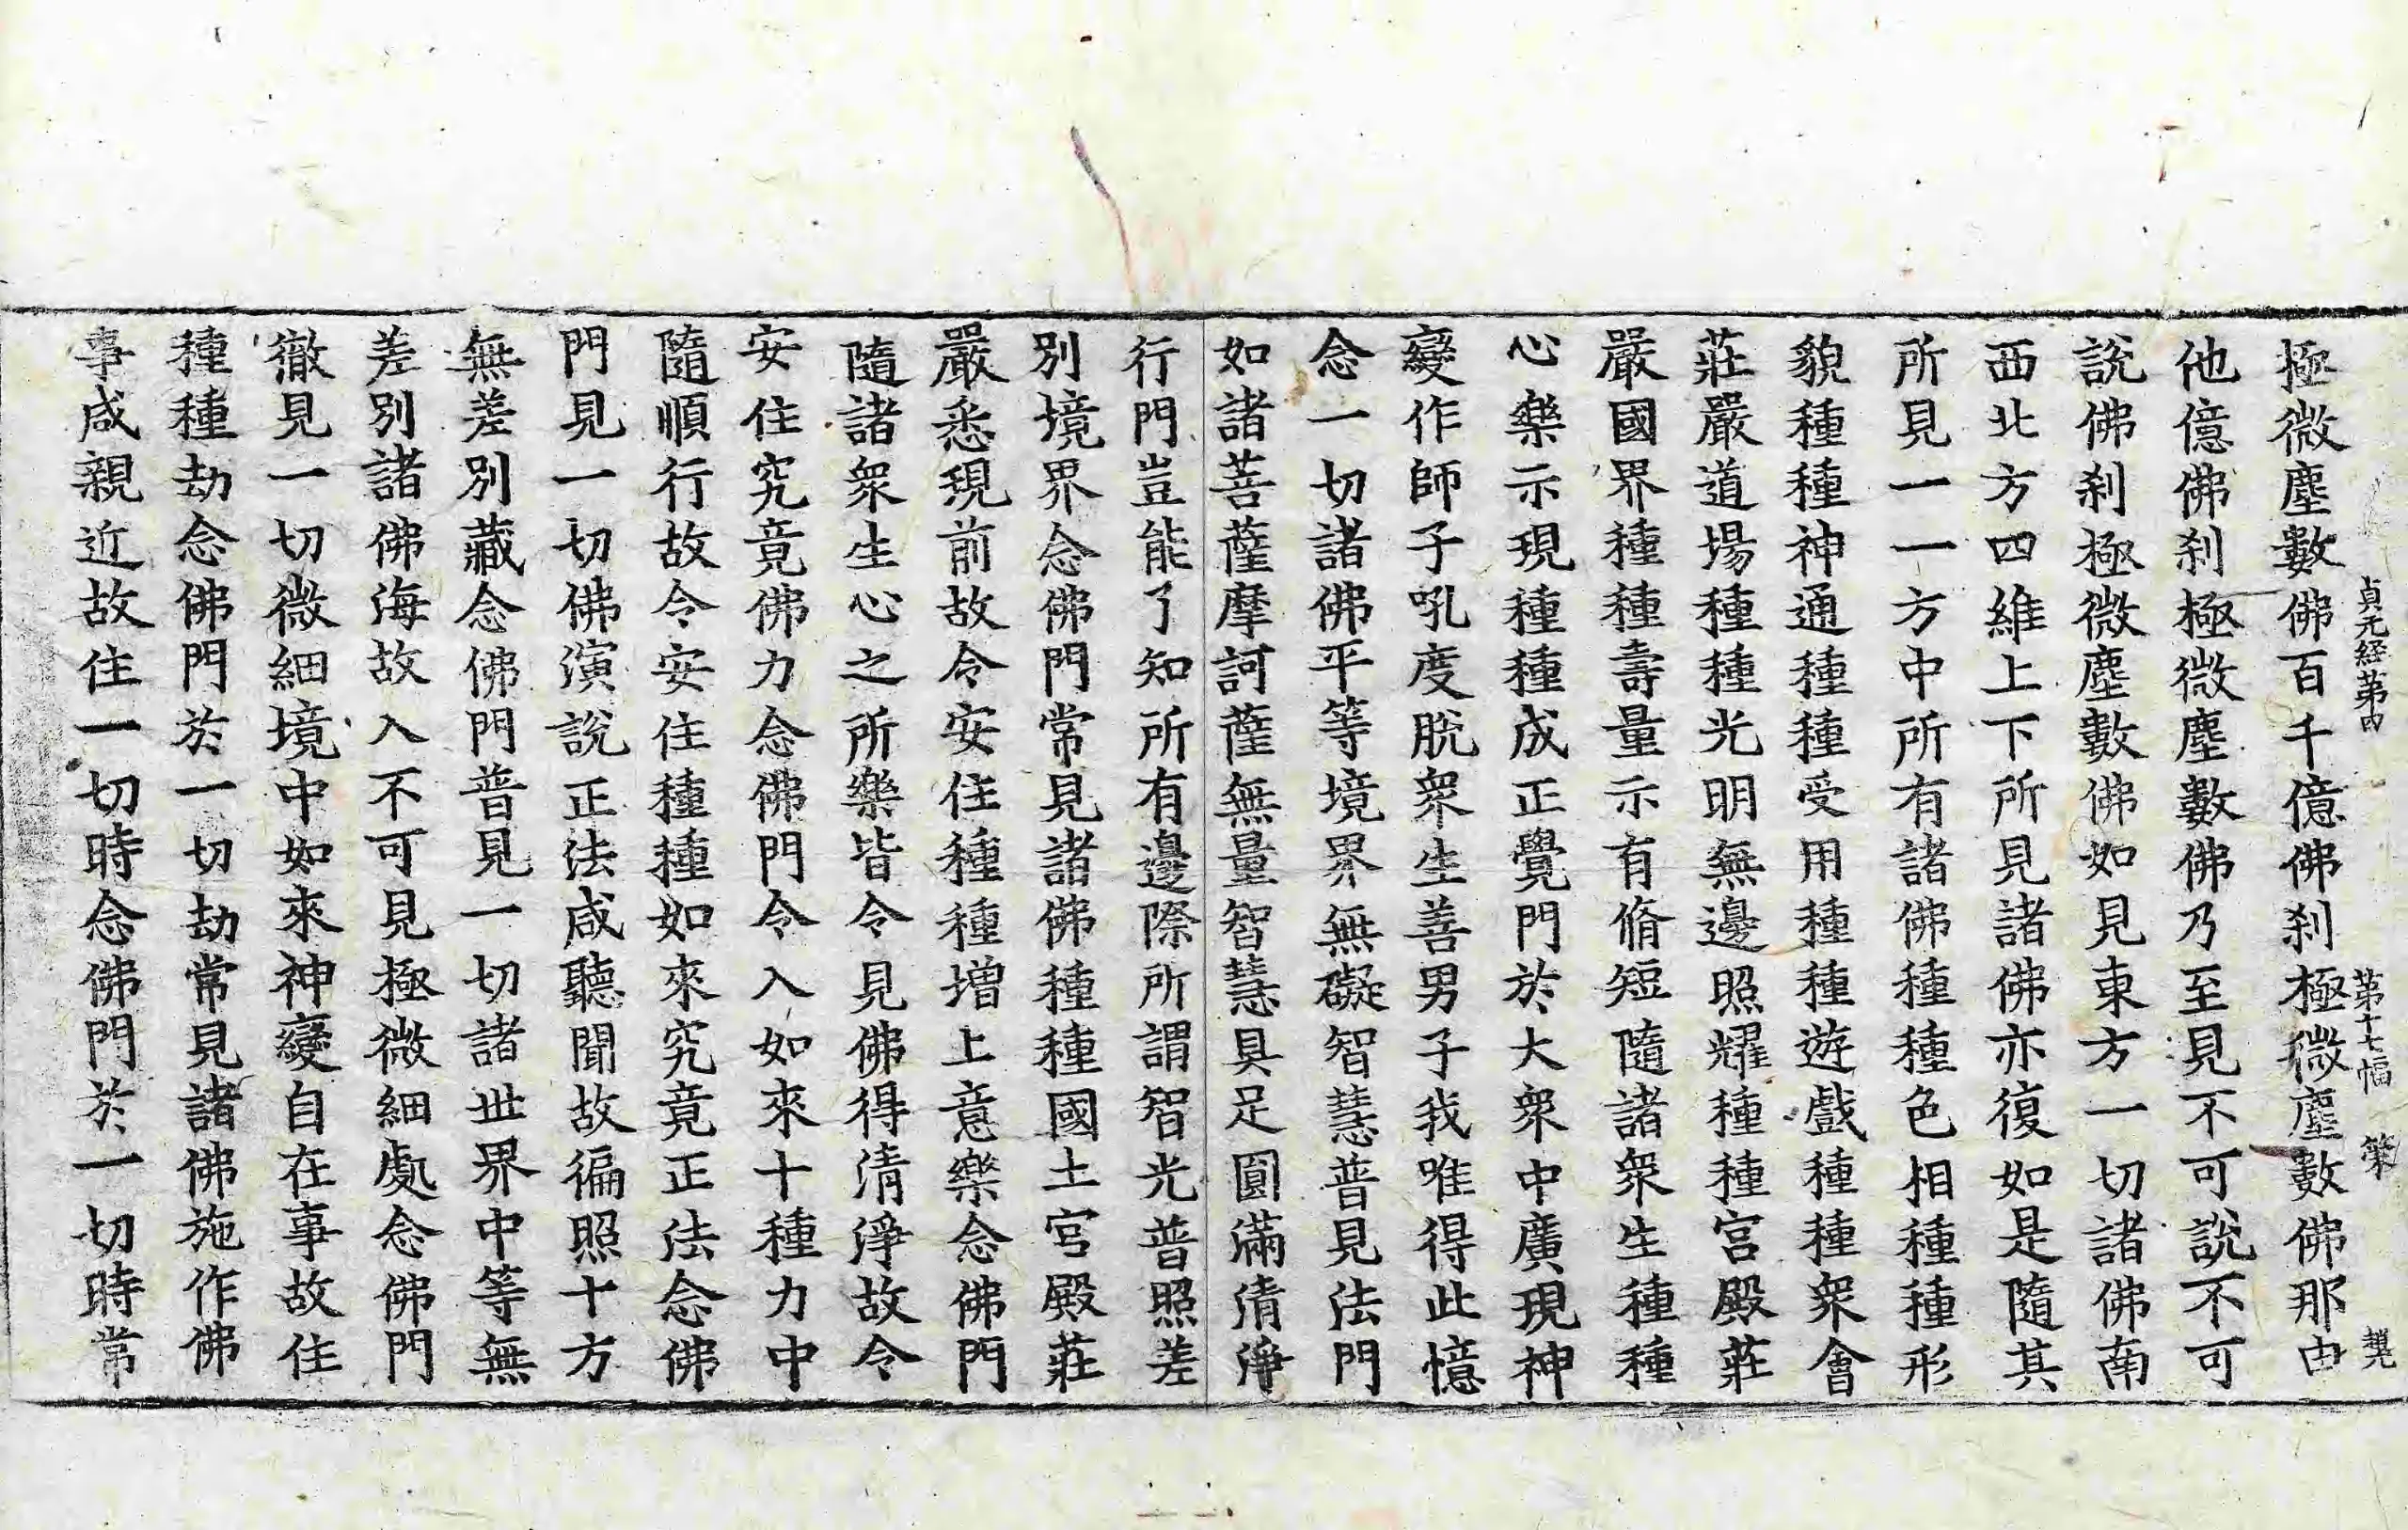 貞元経第四 第十七幅 策
極微塵數佛百千億佛刹極微塵數佛那由
他億佛刹極微塵數佛乃至見不可說不可
說佛刹極微塵數佛如見東方一切諸佛南
西北方四維上下所見諸佛亦復如是隨其
所見一一方中所有諸佛種種色相種種形
貌種種神通種種受用種種遊戲種種衆會
莊嚴道場種種光明無邊照耀種種宮殿莊
嚴國界種種壽量示有脩短隨諸衆生種種
心樂示現種種成正覺門於大衆中廣現神
變作師子吼度脫衆生善男子我唯得此憶
念一切諸佛平等境界無礙智慧普見法門
如諸菩薩摩訶薩無量智慧具足圓滿清淨
行門豈能了知所有邊際所謂智光普照差
別境界念佛門常見諸佛種種國土宮殿莊
嚴悉現前故令安住種種增上意樂念佛門
隨諸衆生心之所樂皆令見佛得清淨故令
安住究竟佛力念佛門令入如來十種力中
隨順行故令安住種種如來究竟正法念佛
門見一切佛演說正法咸聽聞故徧照十方
無差別藏念佛門普見一切諸世界中等無
差別諸佛海故入不可見極微細處念佛門
徹見一切微細境中如來神變自在事故住
種種劫念佛門於一切劫常見諸佛施作佛
事咸親近故住一切時念佛門於一切時常